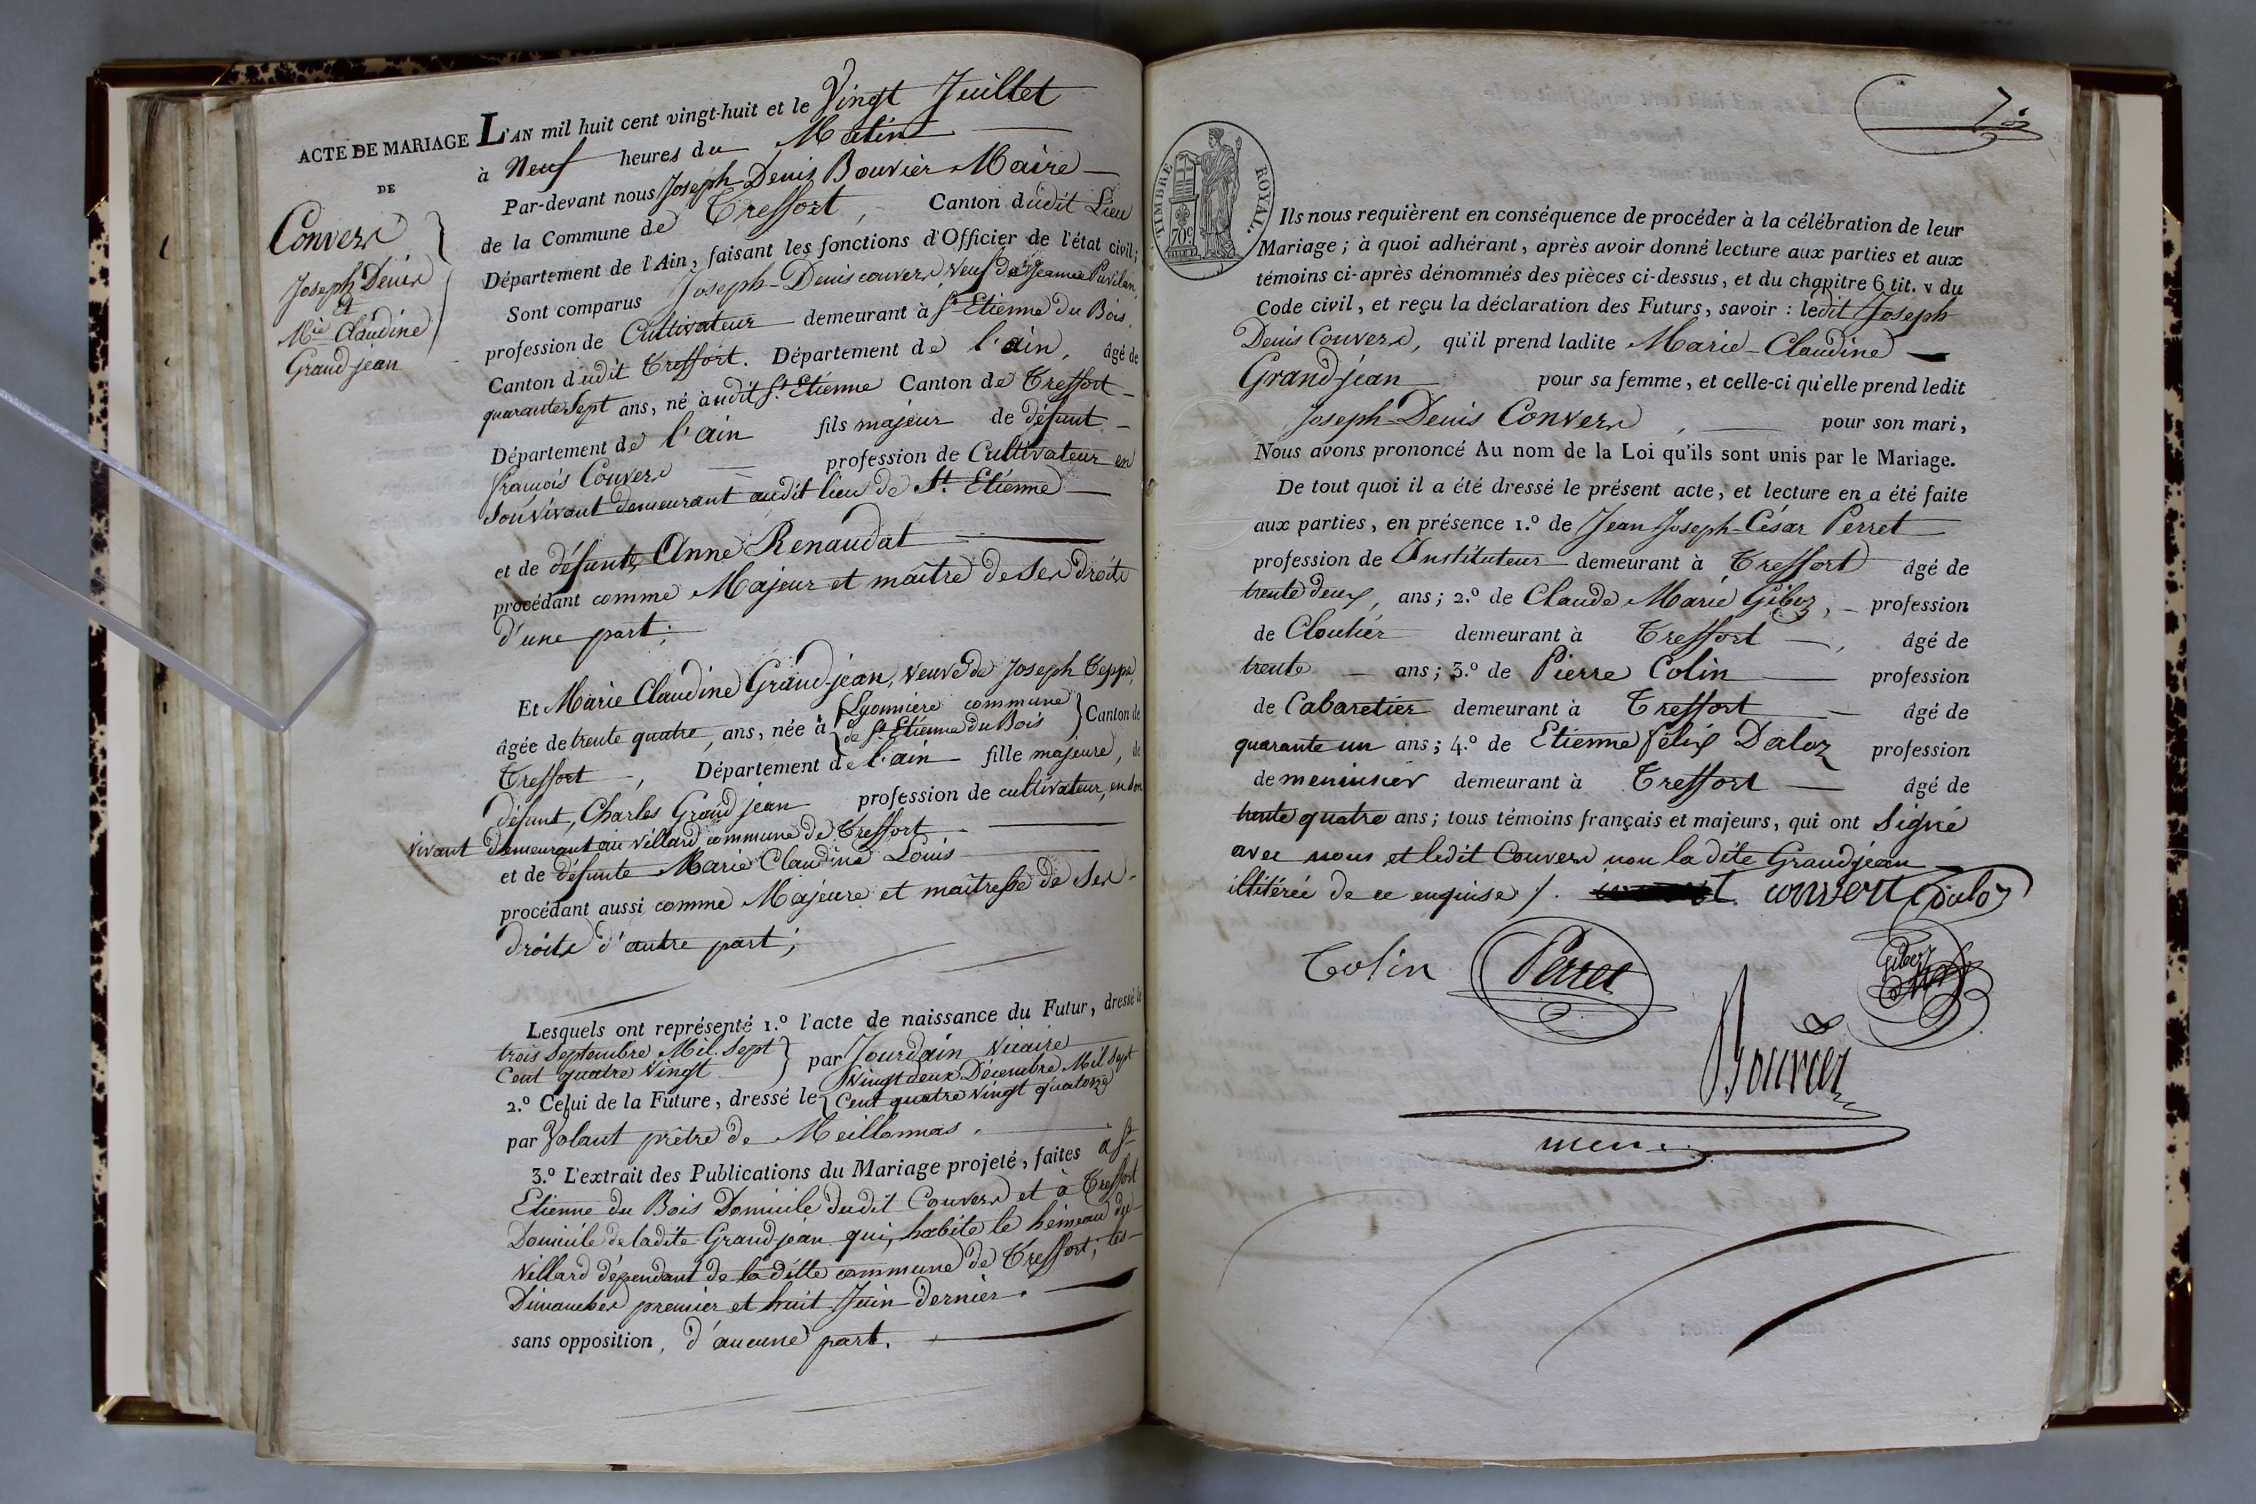 ACTE DE MARIAGE
DE
Convers
Joseph Denis
et
Mie Claudine
Grand-jean
L'AN mil huit cent vingt-huit et le Vingt Juillet
à Neuf heures du Matin
Par-devant nous Joseph Denis Bouvier Maire
de la Commune de Treffort, Canton dudit Lieu
Département de l'Ain, faisant les fonctions d'Officier de l'état civil;
Sont comparus Joseph-Denis convers, veuf de Jeanne Pavilan,
profession de Cultivateur demeurant à St Etienne du Bois,
Canton dudit Treffort. Département de l'ain, âgé de
quarante Sept ans, né audit St. Etienne Canton de Treffort
Département de l'ain fils majeur de défunt
françois Convers profession de Cultivateur en
Son vivant demeurant audit lieu de St. Etienne
et de défunte, Anne Renaudat
procédant comme Majeur et maître de ses droits
d'une part;
Et Marie Claudine Grand-jean, veuve de Joseph Teppe,
âgée de trente quatre, ans, née à { Lyonniere commune de St. Etienne du Bois } Canton de
Treffort, Département de l'ain fille majeure, de
défunt, Charles Grand jean profession de cultivateur, en son
vivant demeurant au villard commune de Treffort
et de défunte Marie Claudine Louis
procédant aussi comme Majeure et maîtresse de ses
droits d'autre part;
Lesquels ont représenté 1.º l'acte de naissance du Futur, dressé le
trois Septembre Mil. Sept
Cent quatre Vingt } par Jourdain Vicaire
2.º Celui de la Future, dressé le { Vingt deux Décembre Mil Sept
Cent quatre vingt quatorze
par Volant prêtre de Meillonnas.
3.º L'extrait des Publications du Mariage projeté, faites à St
Etienne du Bois Domicile dudit Convers et à Treffort
Domicile de ladite Grand-jean qui, habite le hameau du
Villard dépendant de la ditte commune de Treffort, les
Dimanches premier et huit Juin dernier.
sans opposition, d'aucune part.
TIMBRE ROYAL
70c
Ils nous requièrent en conséquence de procéder à la célébration de leur
Mariage; à quoi adhérant, après avoir donné lecture aux parties et aux
témoins ci-après dénommés des pièces ci-dessus, et du chapitre 6 tit. v du
Code civil, et reçu la déclaration des Futurs, savoir : ledit Joseph
Denis Convers, qu'il prend ladite Marie-Claudine
Grandjean pour sa femme, et celle-ci qu'elle prend ledit
Joseph-Denis Convers, pour son mari,
Nous avons prononcé Au nom de la Loi qu'ils sont unis par le Mariage.
De tout quoi il a été dressé le présent acte, et lecture en a été faite
aux parties, en présence 1.º de Jean Joseph-César Perret
profession de Instituteur demeurant à Treffort âgé de
trente deux, ans; 2.º de Claude Marie Giboz, profession
de Cloutier demeurant à Treffort, âgé de
trente ans; 3.º de Pierre Colin profession
de Cabaretier demeurant à Treffort âgé de
quarante un ans; 4.º de Etienne félix Daloz profession
de menuisier demeurant à Treffort âgé de
trente quatre ans; tous témoins français et majeurs, qui ont Signé
avec nous et ledit Convers non la dite Grandjean
illitérée de ce enquise /. convert Daloz
Colin Perret Giboz
Bouvier